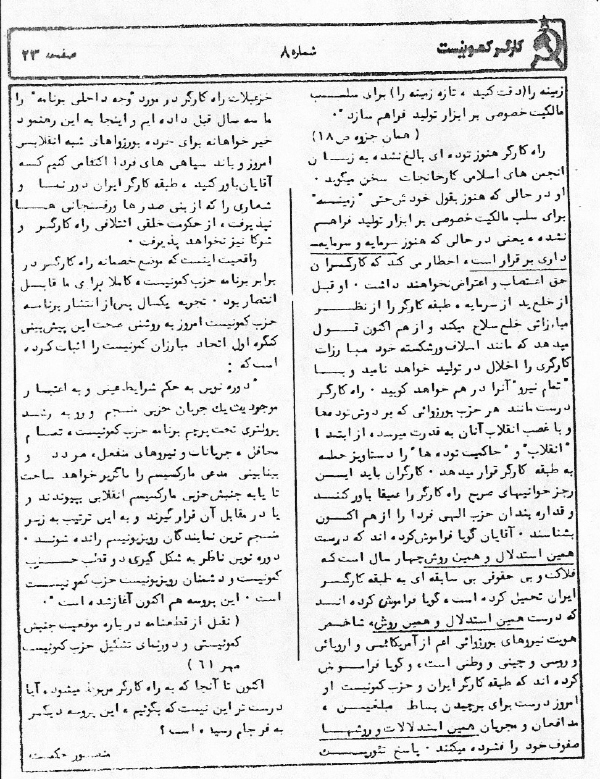 کارگر کمونیست
شماره ۸
صفحه ۲۳
زمینه را (دقت کنید، تازه زمینه را) برای سلب
مالکیت خصوصی بر ابزار تولید فراهم سازد"
(همان جزوه ص ۱۸)
راه کارگر هنوز توده ای بالغ نشده به زبان
انجمن های اسلامی کارخانجات سخن میگوید.
او در حالی که هنوز بقول خودش حتی "زمینه"
برای سلب مالکیت خصوصی بر ابزار تولید فراهم
نشده، یعنی در حالی که هنوز سرمایه و سرمایه
داری بر قرار است، احطار می کند که کارگران
حق اعتصاب و اعتراض نخواهند داشت. او قبل
از خلع ید از سرمایه، طبقه کارگر را از نظر
مبارزاتی خلع سلاح میکند و از هم اکنون قول
میدهد که مانند اسلاف ورشکسته خود مبارزات
کارگری را اخلال در تولید خواهد نامید و با
"تمام نیرو" آنرا در هم خواهد کوبید. راه کارگر
درست مانند هر حزب بورژوائی که بر دوش توده‌ها
و با غصب انقلاب آنان به قدرت میرسد، از ابتدا
"انقلاب" و "حاکمیت توده ها" را دستاویز حمله
به طبقه کارگر قرار میدهد. کارگران باید این
رجز خوانیهای صریح راه کارگر را عمیقا باور کنند
و قداره بندان حزب الهی فردا را از هم اکنون
بشناسند. آقایان گویا فراموش کرده اند که درست
همین استدلال و همین روش چهار سال است که
فلاکت و بی حقوقی بی سابقه ای به طبقه کارگر
ایران تحمیل کرده است، گویا فراموش کرده اند
که درست همین استدلال و همین روش، شاخص
هویت نیروهای بورژوائی اعم از آمریکائی و اروپائی
و روسی و چینی و وطنی است، و گویا فراموش
کرده اند که طبقه کارگر ایران و حزب کمونیست او
امروز درست برای برچیدن بساط مبلغین،
مدافعان و مجریان همین استدلالات و روشها
صفوف خود را فشرده میکنند. پاسخ تئوریک
خزعبلات راه کارگر در مورد "وجه داخلی برنامه" را
ما سه سال قبل داده ایم و اینجا به این رهنمود
خیر خواهانه برای خرده بورژواهای شبه انقلابی
امروز و باند سیاهی های فردا اکتفا می کنیم که
آقایان باور کنید، طبقه کارگر ایران دورنما و
شعاری را که از بنی صدرها و رفسنجانی ها
نپذیرفت، از حکومت خلقی ائتلافی راه کارگر و
شرکا نیز نخواهد پذیرفت.
واقعیت اینست که موضع خصمانه راه کارگر در
برابر برنامه حزب کمونیست، کاملا برای ما قابل
انتظار بود. تجربه یکسال پس از انتشار برنامه
حزب کمونیست امروز به روشنی صحت این پیش‌بینی
کنگره اول اتحاد مبارزان کمونیست را اثبات کرده
است که:
"دوره نوین به حکم شرایط عینی و به اعتبار
موجودیت یک جریان حزبی منسجم و رو به رشد
پرولتری تحت پرچم برنامه حزب کمونیست، تمام
محافل، جریانات و نیروهای منفعل، مردد و
بینابینی مدعی مارکسیسم را ناگزیر خواهد ساخت
تا یا به جنبش حزبی مارکسیسم انقلابی بپیوندند و
یا در مقابل آن قرار گیرند و به این ترتیب به زیر
منسجم ترین نمایندگان رویزیونیسم رانده شوند.
دوره نوین ناظر به شکل گیری دو قطب حزب
کمونیست و دشمنان رویزیونیست حزب کمونیست
است. این پروسه هم اکنون آغاز شده است".
(نقل از قطعنامه درباره موقعیت جنبش
کمونیستی و دورنمای تشکیل حزب کمونیست
مهر ۶۱)
اکنون تا آنجا که به راه کارگر مربوط میشود، آیا
درست تر این نیست که بگوئیم، این پروسه دیگر
به فرجام رسیده است؟
منصور حکمت